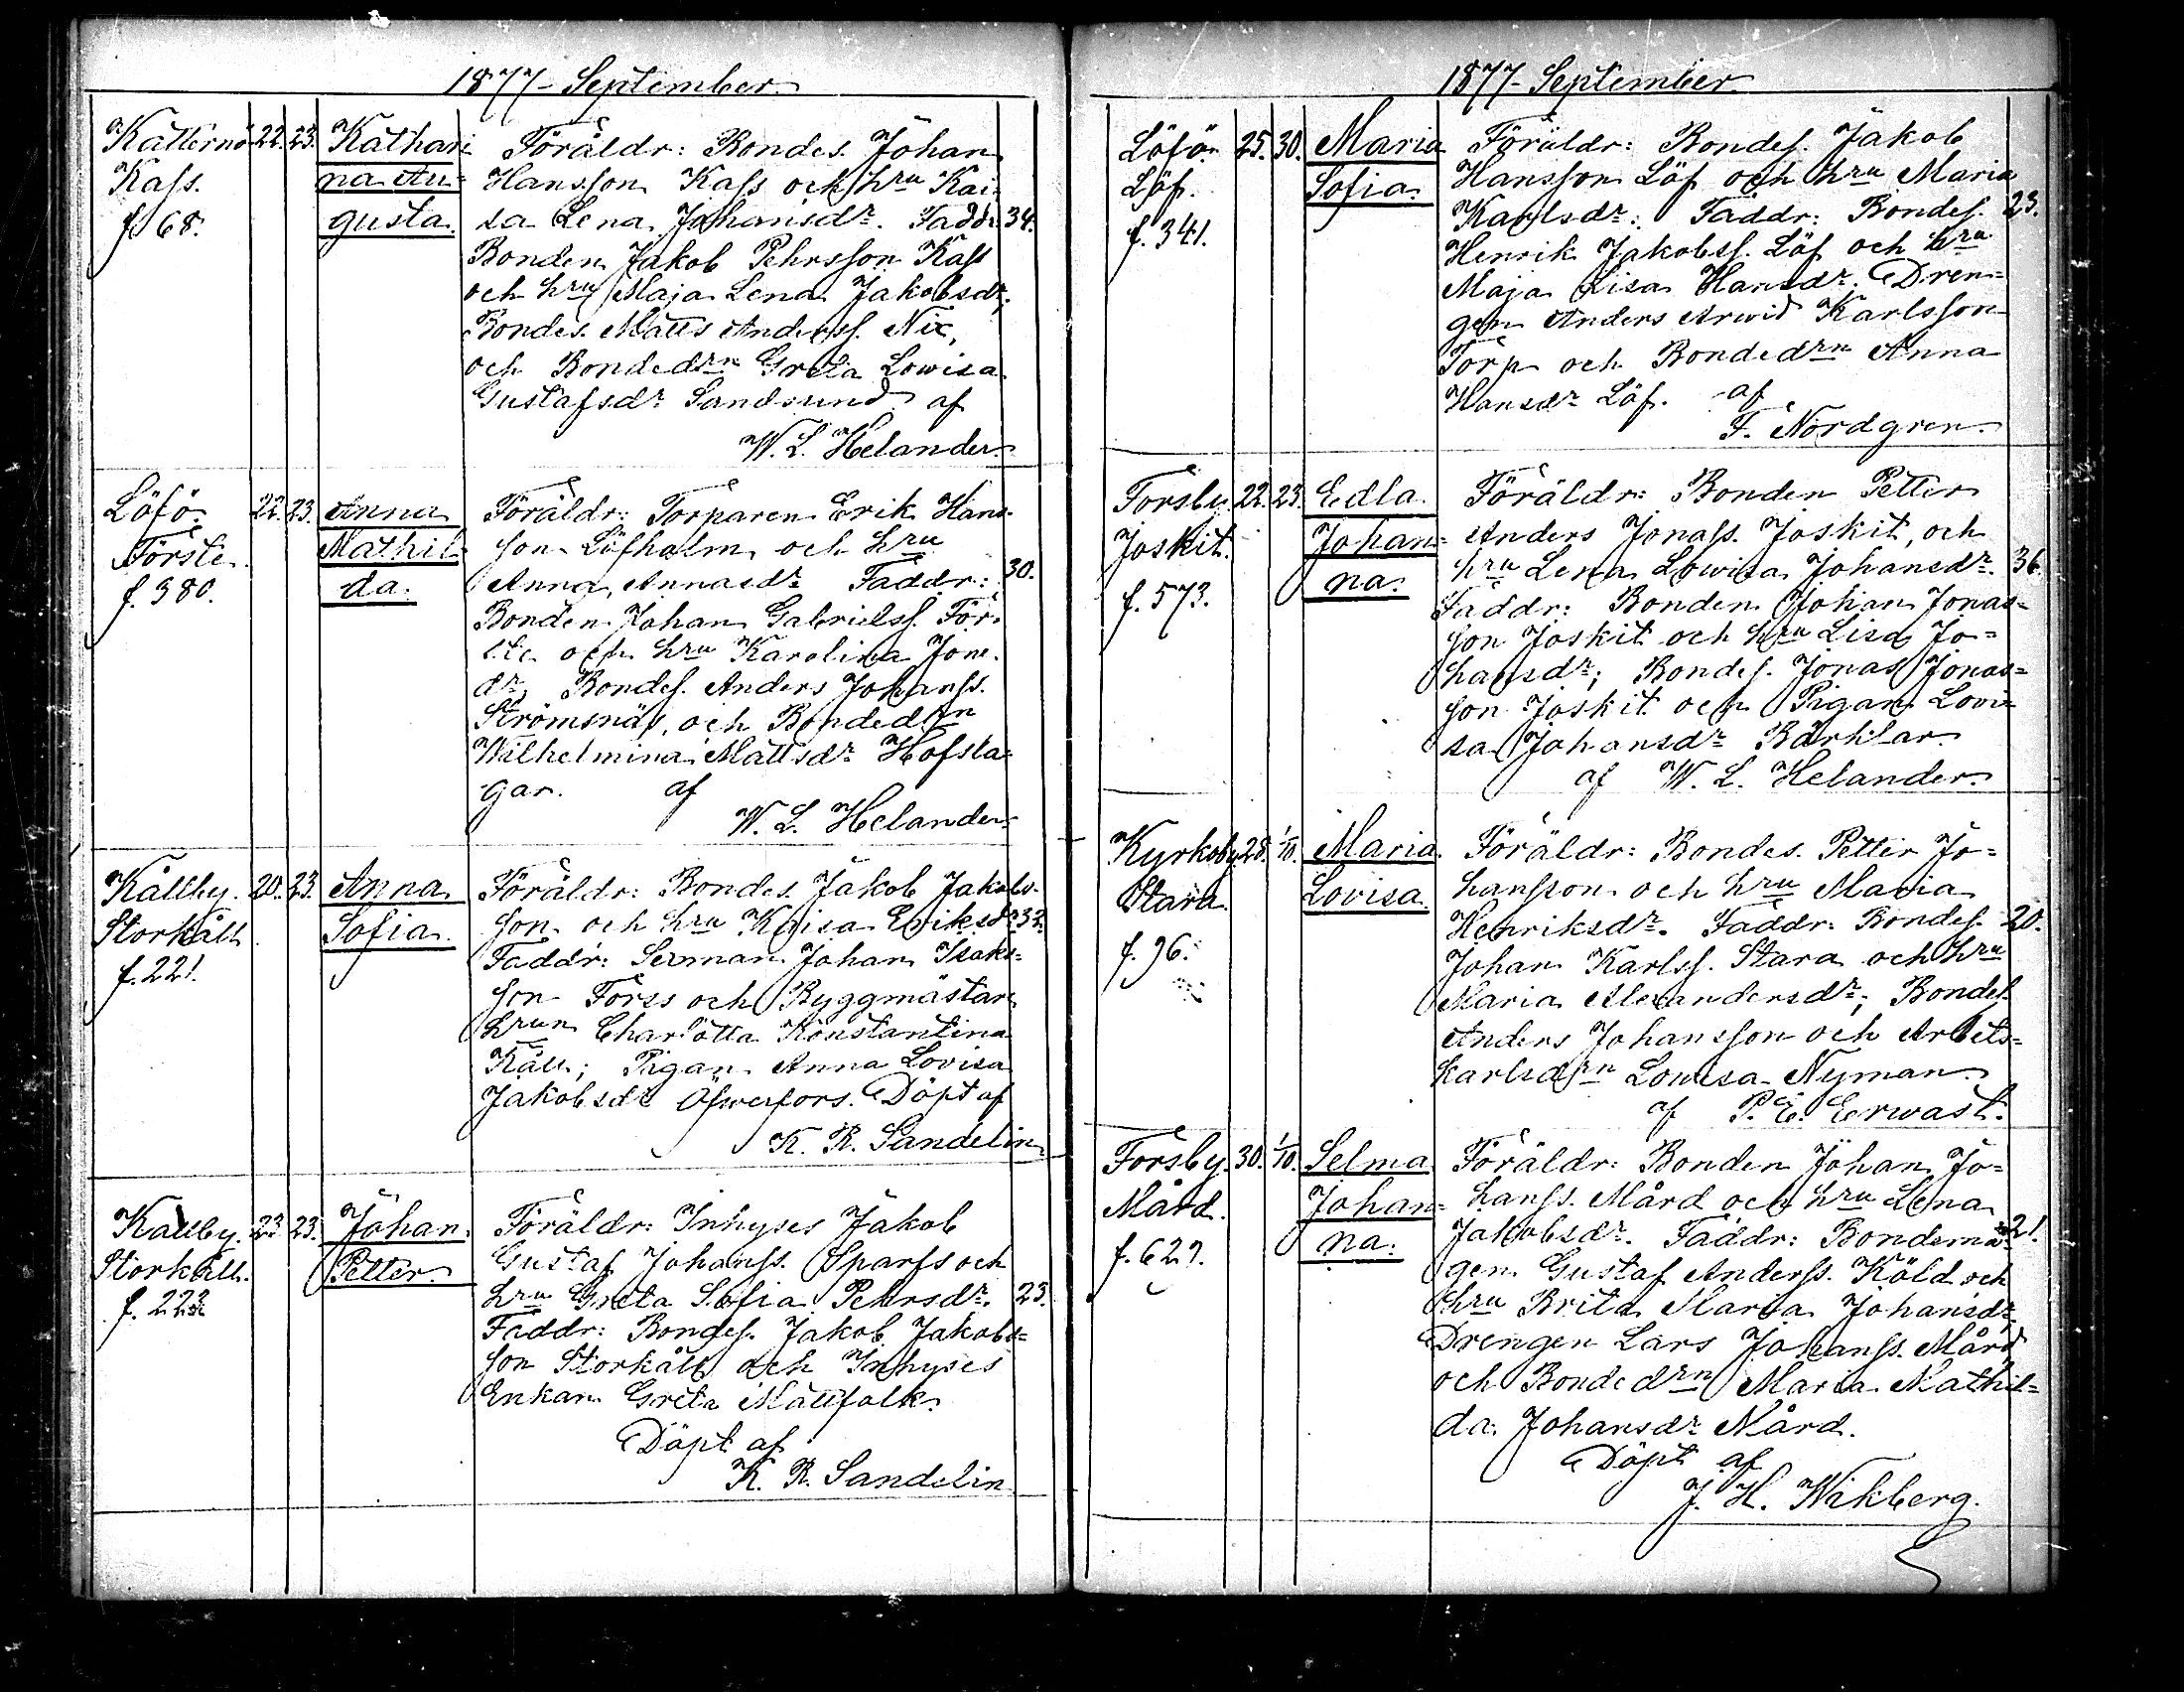 1877 - September.
Katternö 22. 23. Kathari- Föräldr: Bondes. Johan
Kass. na Au- Hansson Kass och hru Kai-
f. 68. gusta. sa Lena Johansdr. Faddr: 34.
Bonden Jakob Pehrsson Kass
och hru Maja Lena Jakobsdr;
Bondes. Matts Anderss. Nix,
och Bondedrn Greta Lowisa
Gustafsdr Sandsund af
W. L. Helander.
Löfö. 22. 23. Anna Föräldr: Torparen Erik Hans-
Förste. Mathil- son Löfholm och hru
f. 380. da. Anna Annasdr Faddr: 30.
Bonden Johan Gabrielss. För-
ste och hru Karolina Jone-
dr; Bondes. Anders Johanss.
Strömsnäs, och Bondedrn
Wilhelmina Mattsdr Hofsla-
gar. af
W. L. Helander.
Kållby. 20. 23. Anna Föräldr: Bondes. Jakob Jakobs-
Storkåll Sofia. son och hru Kaisa Eriksdr 33.
f. 221. Faddr: Serman Johan Isaks-
son Forss och Byggmästar
hrun Charlotta Konstantina
Käll; Pigan Anna Lovisa
Jakobsdr Öfwerfors. Döpt af
K. R. Sandelin.
Kållby. 23 23. Johan Föräldr: Inhyses Jakob
Storkåll. Petter. Gustaf Johanss. Sparfs och
f. 223 hru Greta Sofia Pehrsdr. 23.
Faddr: Bondes. Jakob Jakobs-
son Storkåll och Inhyses
Enkan Greta Mattfolk.
Döpt af
K. R. Sandelin
1877 - September
Löfö. 25. 30. Maria Föräldr: Bondes. Jakob
Löf. Sofia. Hansson Löf och hru Maria
f. 341. Karlsdr: Faddr: Bondes. 23.
Henrik Jakobss. Löf och hru
Maja Lisa Hansdr. Dren-
gen Anders Arwid Karlsson
Torp och Bondedrn Anna
Hansdr Löf. af
F. Nordgren.
Forsby 22. 23. Edla Föräldr: Bonden Petter
Joskit. Johan- Anders Jonass. Joskit, och
f. 573. na. hru Lena Lowisa Johansdr. 36.
Faddr: Bonden Johan Jonas-
son Joskit och hru Lisa Jo-
hansdr; Bondes. Jonas Jonas-
son Joskit och Pigan Lowi-
sa Johansdr Bärklar.
af W. L. Helander.
Kyrkoby 28. 1/10. Maria Föräldr: Bondes. Petter Jo-
Stara. Lovisa. hansson och hru Maria
f. 96. Henriksdr. Faddr: Bondes. 20.
Johan Karlss. Stara och hru
Maria Alexandersdr; Bondes.
Anders Johansson och Arbets-
karlsdrn Lowisa Nyman.
af P. E. Erwast.
Forsby. 30. 1/10. Selma Föräldr: Bonden Johan Jo-
Mård. Johan- hanss. Mård och hru Lena
f. 627. na. Jakobsdr. Faddr: Bondemå- 21.
gen Gustaf Anderss. Köld och
hru Brita Maria Johansdr,
Drengen Lars Johanss. Mård
och Bondedrn Maria Mathil-
da Johansdr Mård.
Döpt af
J. H. Wikberg.